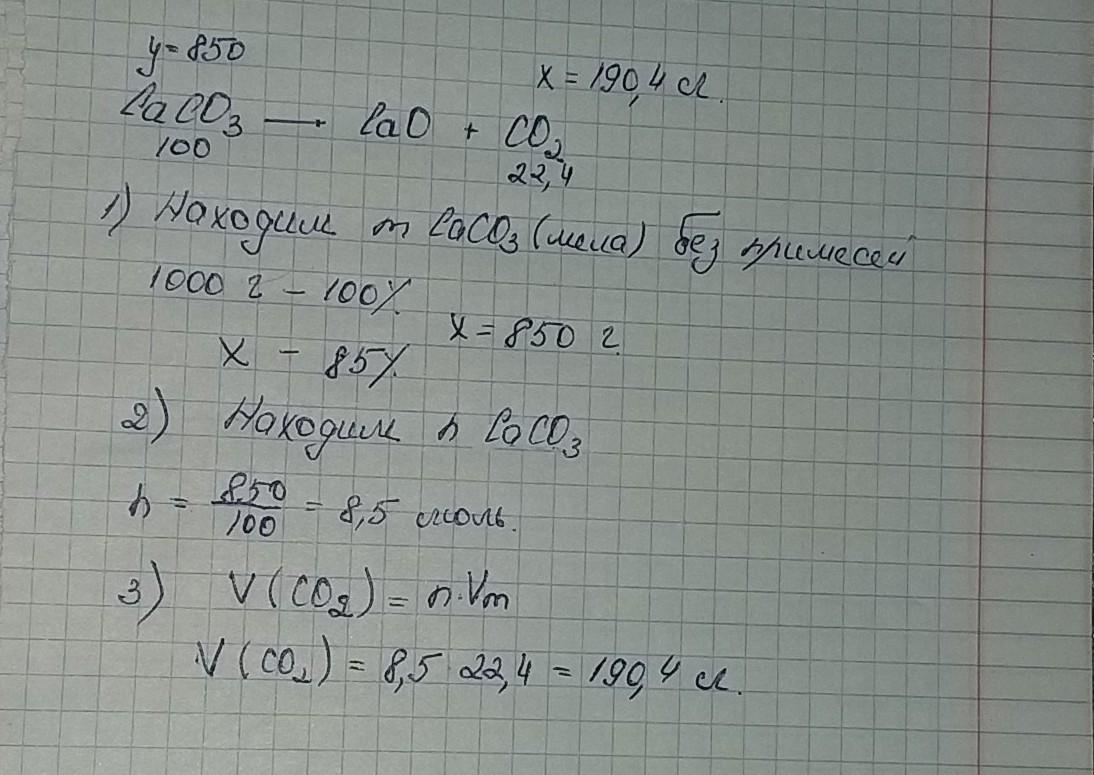 y=850
x = 190,4 л.
CaCO3 → CaO + CO2
100
22,4
1) Находим m CaCO3 (мела) без примесей
1000 г – 100%
x = 850 г.
x – 85%
2) Находим n CaCO3
n = 850/100 = 8,5 моль.
3) V (CO2) = n·Vm
V (CO2) = 8,5 22,4 = 190,4 л.